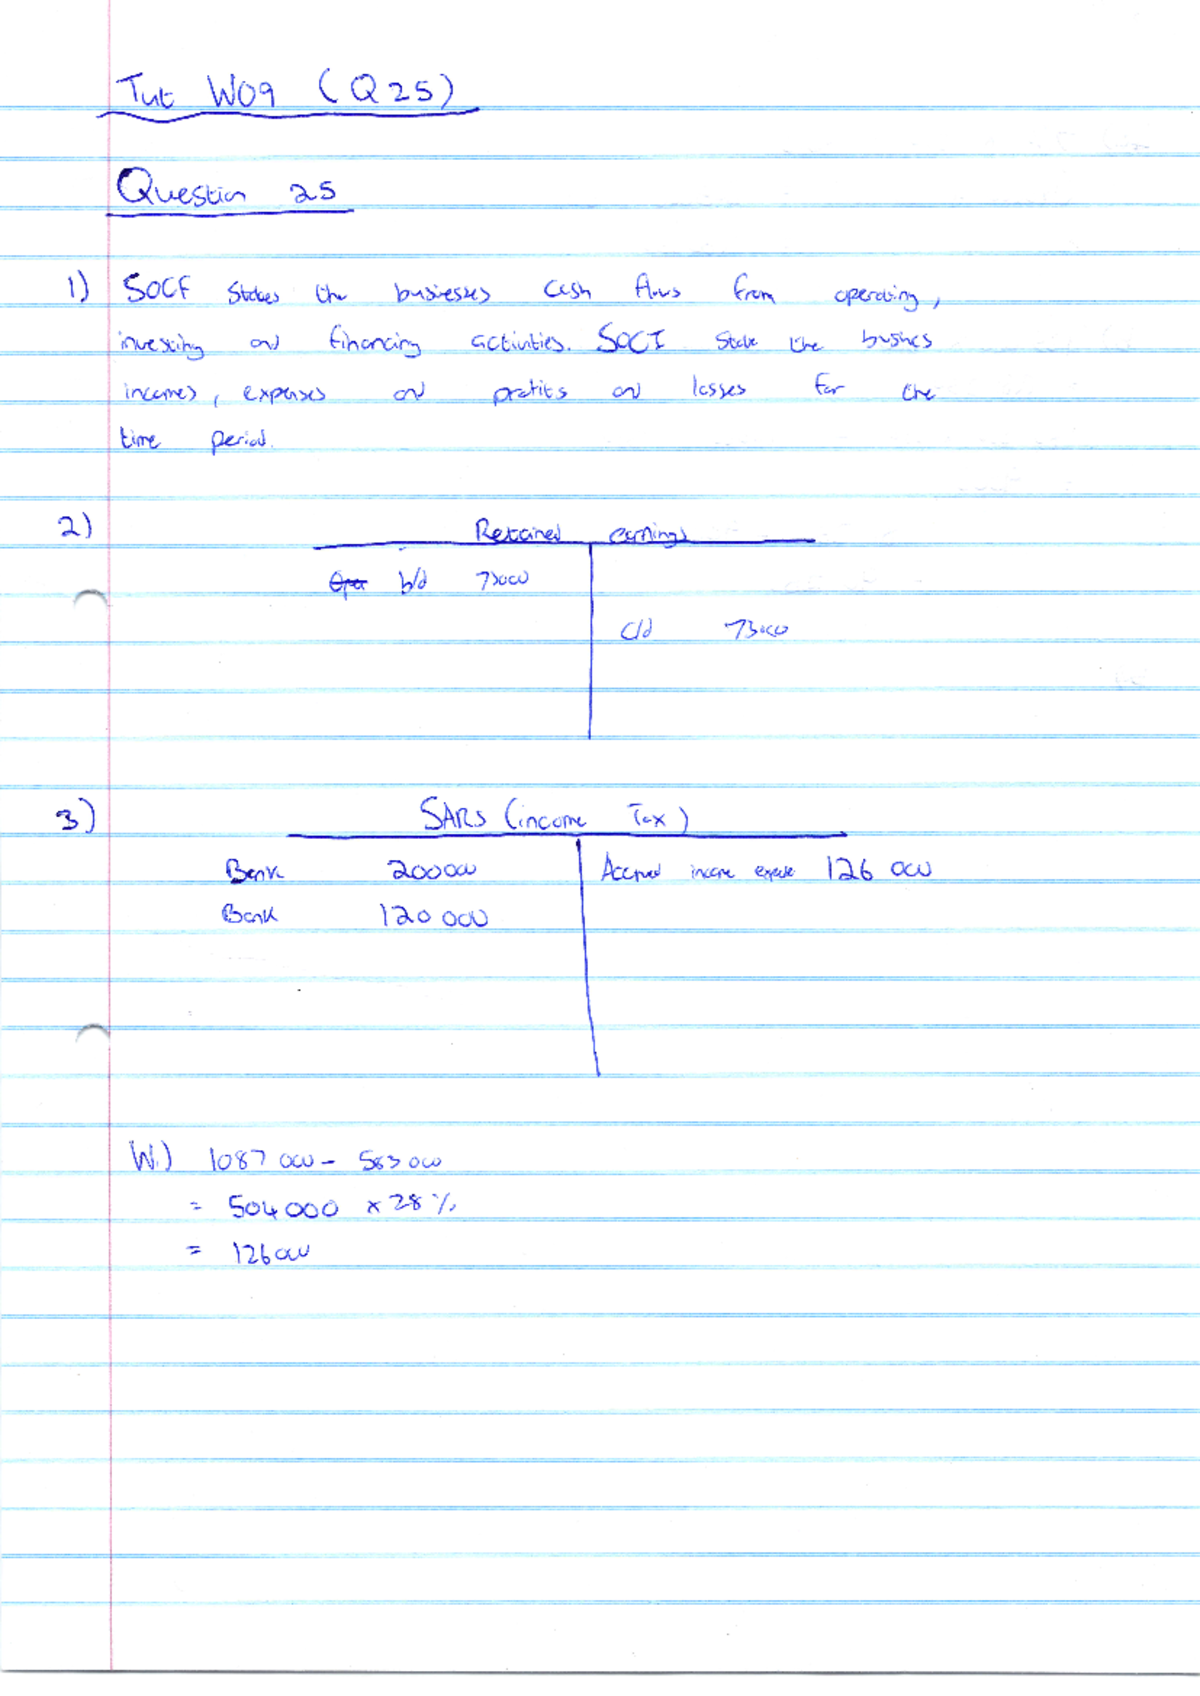 Tut W09 (Q25)
Question 25
1) SOCF states the businesses cash flows from operating,
investing and financing activities. SOCI state the busines
incomes, expenses and profits and losses for the
time period.
2) Retained earnings
b/d 73000
c/d 73000
3) SARS (income Tax)
Bank 200000 Accrued income expense 126 000
Bank 120 000
W.) 1087 000 - 583 000
= 504 000 x 28%
= 126 000